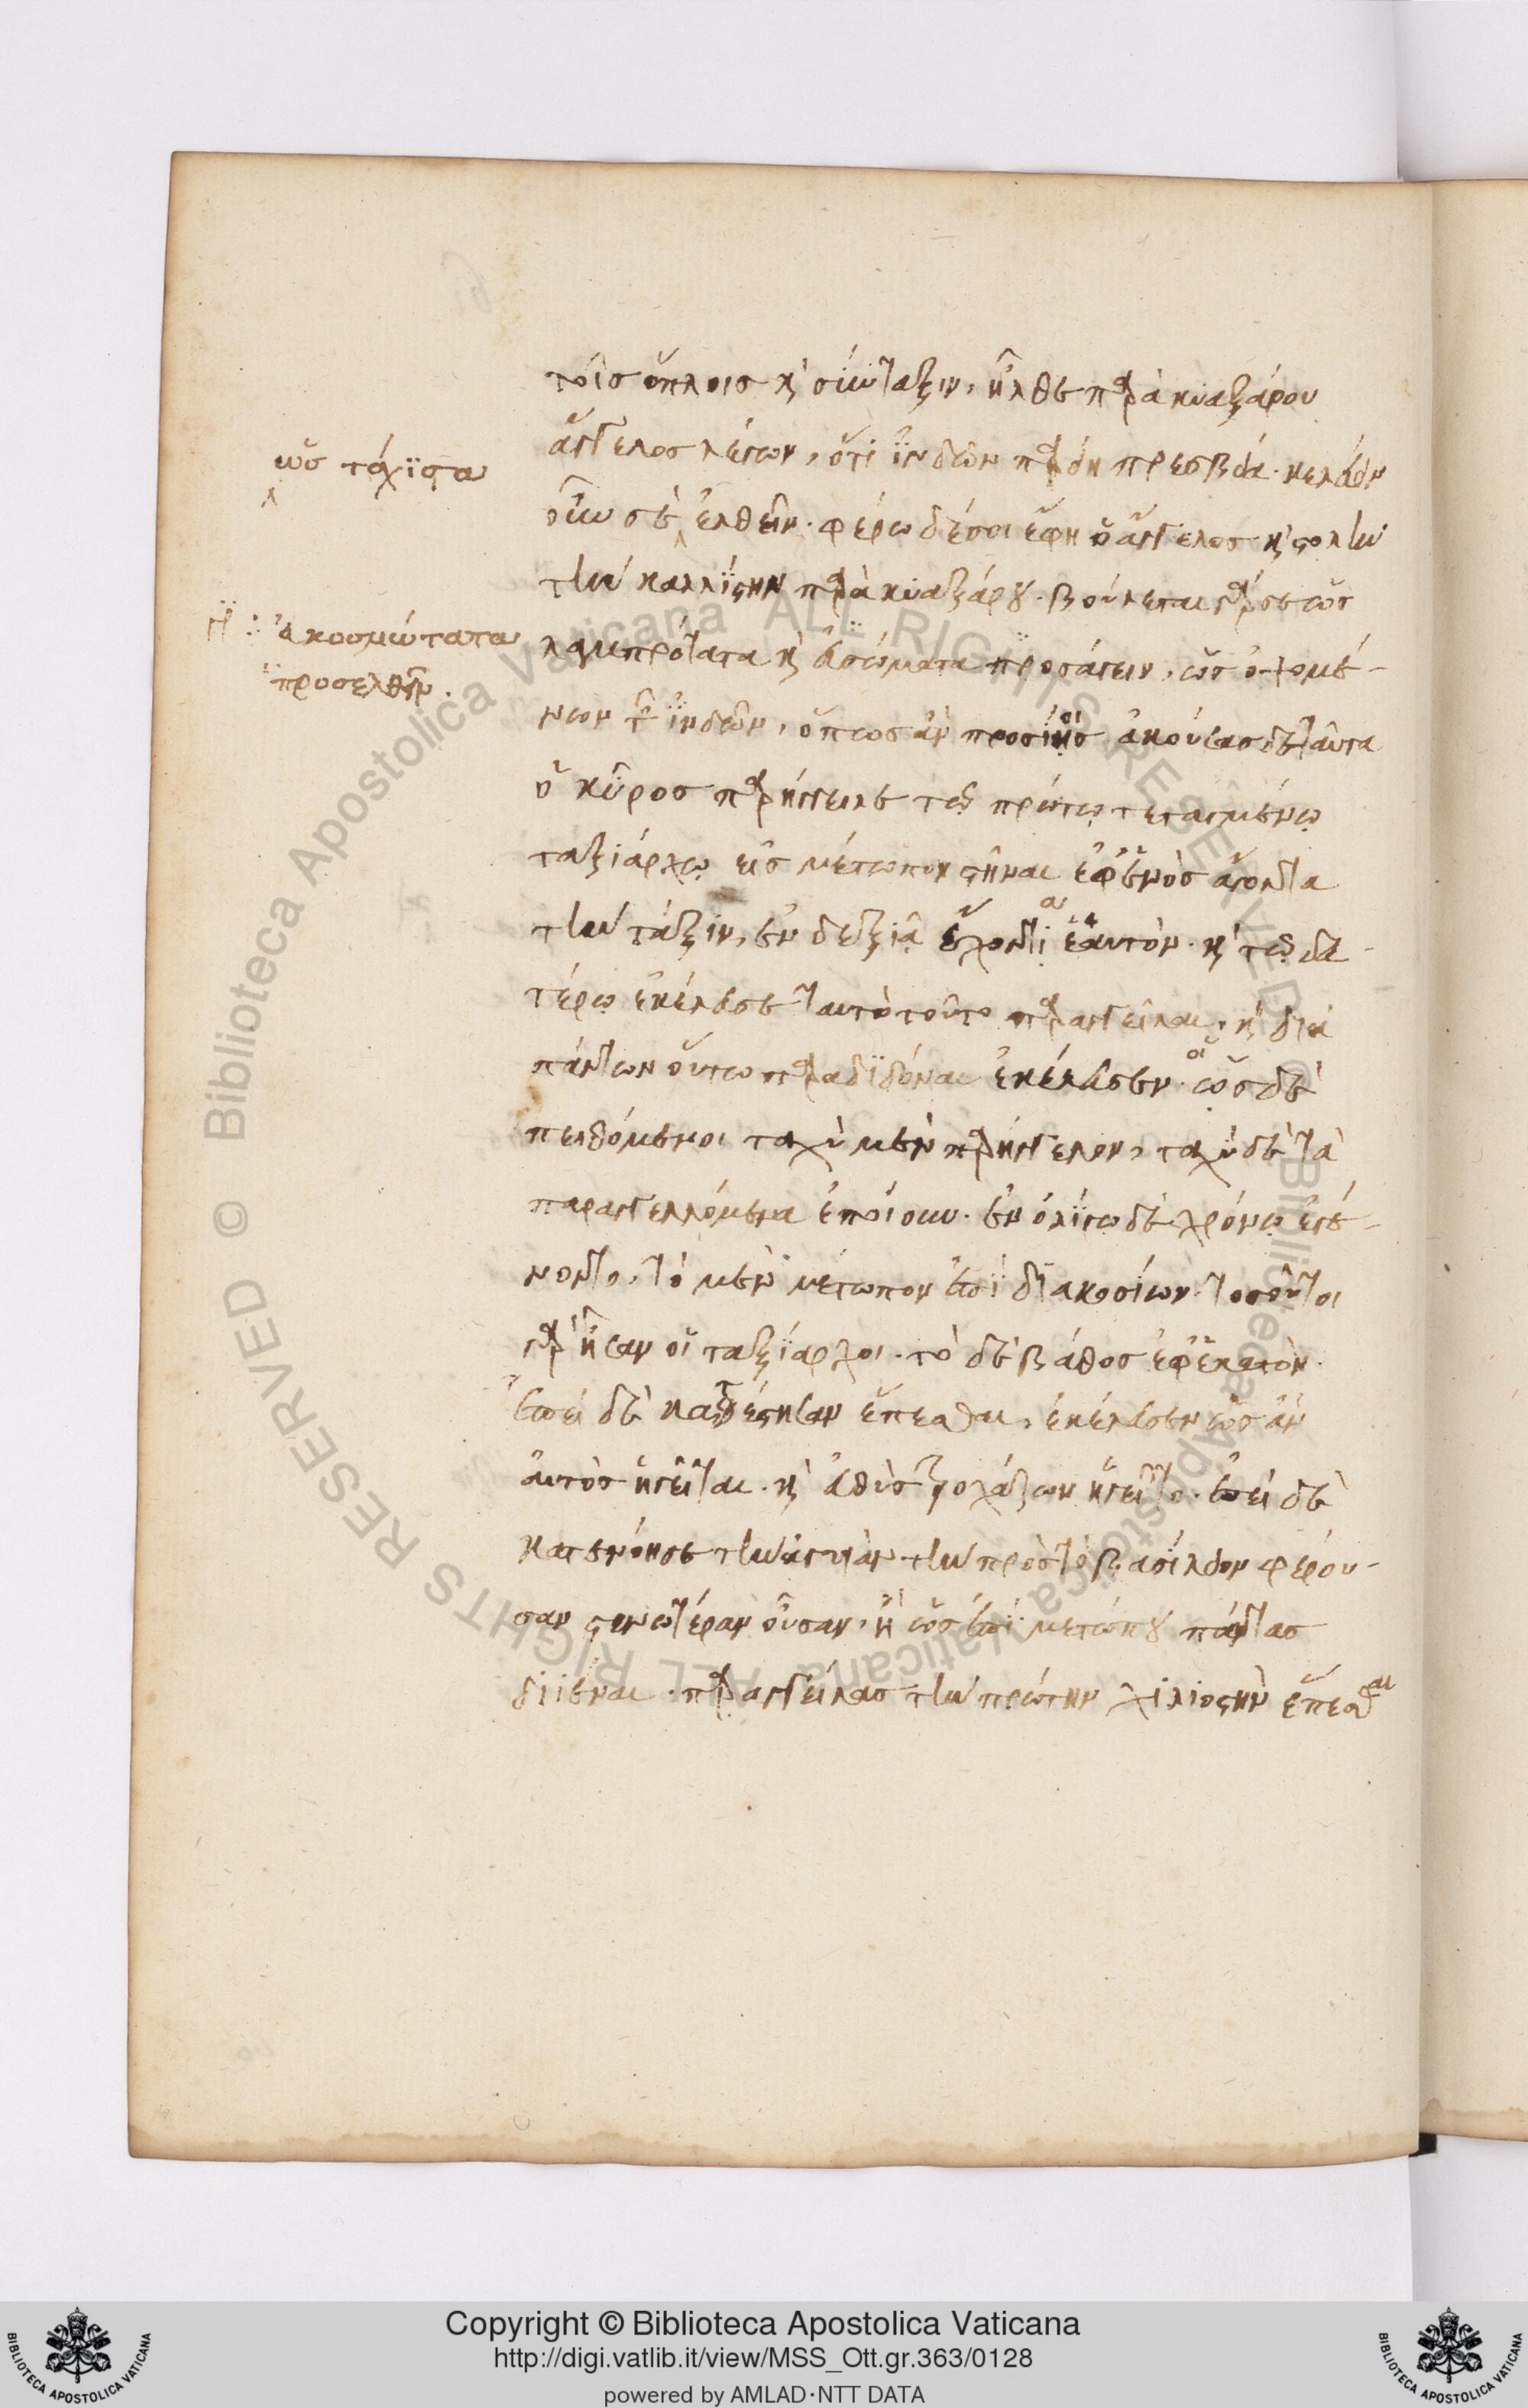 τοῖσ ὅπλοισ κὶ σύνταξιν, ἦλθε παρὰ κυαξάρου
ἄγγελοσ λέγων, ὅτι ἰνδῶν παρείη πρεσβεία. κελεύει
ὡσ τάχϊστα
οὖν σὲ ἐλθεῖν. φέρω δέσοι ἔφη ὁ ἄγγελοσ κὶ στολὴν
τὴν καλλίστην παρὰ κυαξάρου. βούλεται γάρ σε ὡσ
εὐκοσμώτατα
προσελθεῖν.
λαμπρότατα κὶ εὐσώματα προσάγειν, ὡσ ὀψομέ-
νων τῶν ἰνδῶν, ὅπωσ ἂν προσίῃσ. ἀκούσασ δὲ ταῦτα
ὁ κῦροσ παρήγγειλε τῷ πρώτῳ τεταγμένῳ
ταξιάρχῳ εἰσ μέτωπον στῆναι ἐφ' ἑνὸσ ἄγοντα
τὴν τάξιν, ἐν δεξιᾷ ἔχοντι ἑαυτόν. κὶ τῷ δευ-
τέρῳ ἐκέλευσε ταυτὸ τοῦτο παραγγεῖλαι, κὶ διὰ
πάντων οὕτω παραδϊδόναι ἐκέλευσεν. ὡσ δὲ
πειθόμενοι ταχὺ μὲν παρήγγελον, ταχὺ δὲ τὰ
παραγγελλόμενα ἐποίουν. ἐν ὀλίγω δὲ χρόνῳ ἐγέ-
νοντο, τὸ μὲν μέτωπον ἐπὶ διακοσίων. τοσοῦτοι
γὰρ ἦσαν οἱ ταξίαρχοι. τὸ δὲ βάθοσ ἐφ' ἑκατὸν.
ἐπεὶ δὲ κατέστησαν ἕπεσθαι, ἐκέλευσεν ὡσ ἂν
αὐτὸσ ἡγεῖται. κὶ εὐθὺσ τροχάζων ἡγεῖτο. ἐπεὶ δὲ
κατενόησε τὴν ἀγυιὰν τὴν πρὸσ τὸ βασίλειον φέρου-
σαν στενωτέραν οὖσαν, ἢ ὡσ ἐπὶ μετώπου πάντασ
διιέναι. παραγγείλασ τὴν πρώτην χιλιοστὴν ἕπεσθαι
© Biblioteca Apostolica Vaticana ALL RIGHTS RESERVED
© Biblioteca Apostolica Vaticana ALL RIGHTS RESERVED
Copyright © Biblioteca Apostolica Vaticana
http://digi.vatlib.it/view/MSS_Ott.gr.363/0128
powered by AMLAD·NTT DATA
BIBLIOTECA APOSTOLICA VATICANA
BIBLIOTECA APOSTOLICA VATICANA